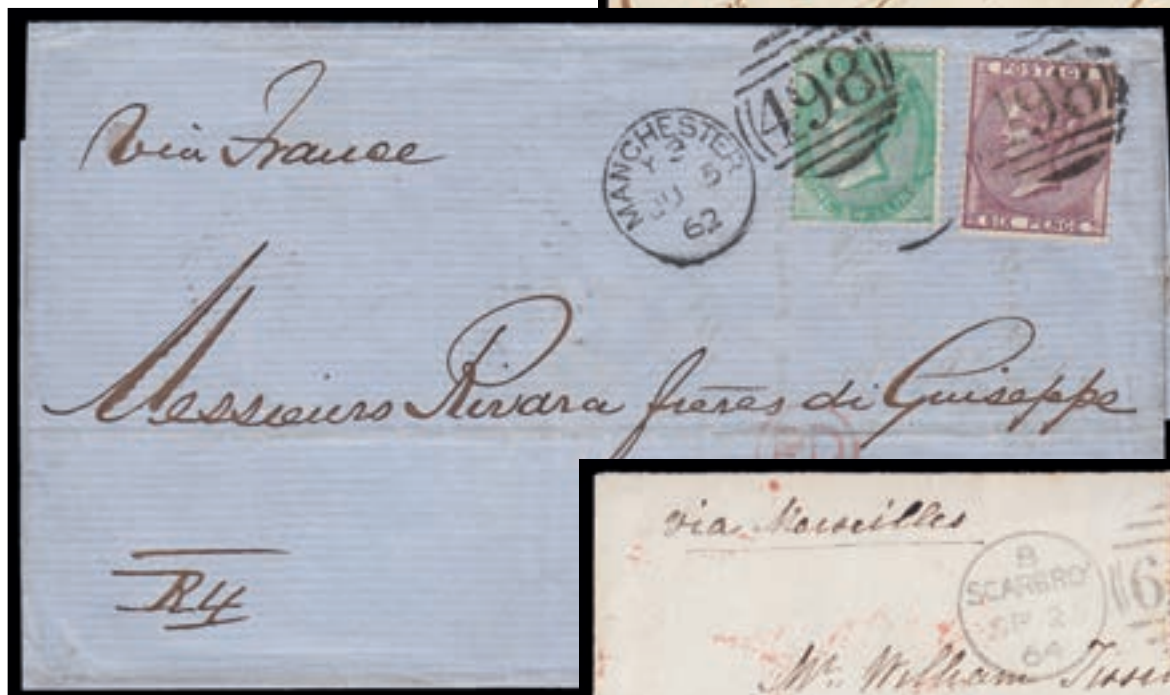 via France
MANCHESTER
5
62
498
498
POSTAGE
SIX PENCE
Messieurs Rivara frères di Guiseppe
PD
R4
via Marseilles
B
SCARBRO
SP 2
64
6
Mr. William